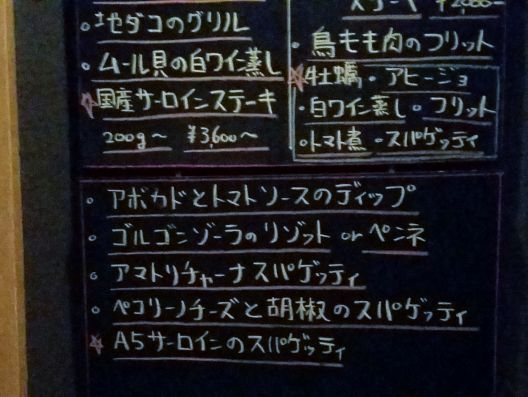 地ダコのグリル
ムール貝の白ワイン蒸し
☆国産サーロインステーキ
200g〜 ¥3,600〜
¥2,000〜
・鳥もも肉のフリット
☆牡蠣・アヒージョ
・白ワイン蒸し・フリット
・トマト煮・スパゲッティ
・アボカドとトマトソースのディップ
・ゴルゴンゾーラのリゾット or ペンネ
・アマトリチャーナスパゲッティ
・ペコリーノチーズと胡椒のスパゲッティ
☆A5サーロインのスパゲッティ